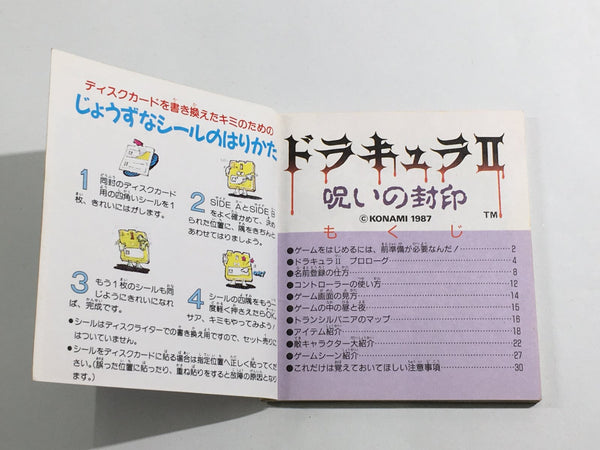 ディスクカードを書き換えたキミのための
じょうずなシールのはりかた
1 同封のディスクカード
用の四角いシールを1
枚、きれいにはがします。
2 SIDE AとSIDE B
をよく確かめて、決め
られた位置に、隅をきちんと
あわせてはりましょう。
3 もう1枚のシールも同
じようにきれいになれ
ば、完成です。
4 シールの四隅をもう一
度軽く押さえたらOK。
サア、キミもやってみよう!
●シールはディスクライターでの書き換え用ですので、セット売りに
はついていません。
●シールをディスクカードに貼る場合は指定位置へ正しく貼ってくだ
さい。(誤った位置に貼ったり、重ね貼りをすると故障の原因となり
ます。)
ドラキュラII
呪いの封印
©KONAMI 1987
TM
もくじ
●ゲームをはじめるには、前準備が必要なんだ! 2
●ドラキュラII プロローグ 4
●名前登録の仕方 8
●コントローラーの使い方 12
●ゲーム画面の見方 14
●ゲームの中の昼と夜 15
●トランシルバニアのマップ 16
●アイテム紹介 18
●敵キャラクター大紹介 22
●ゲームシーン紹介 27
●これだけは覚えておいてほしい注意事項 30